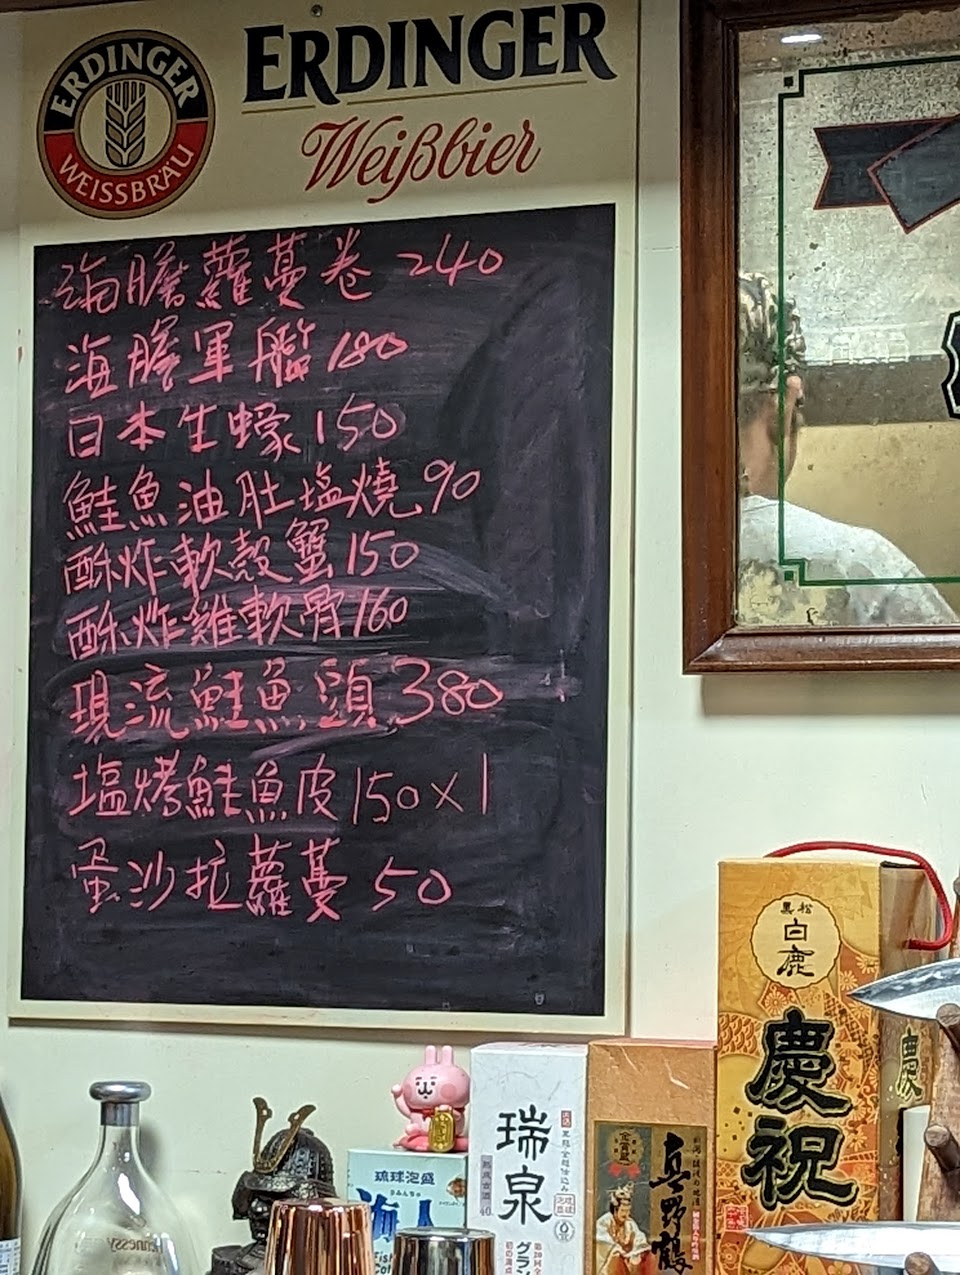 ERDINGER
WEISSBRÄU
ERDINGER
Weißbier
海膽蘿蔓卷 240
海膽軍艦 180
日本生蠔 150
鮭魚油肚塩燒 90
酥炸軟殼蟹 150
酥炸雞軟骨 160
現流鮭魚頭 380
塩烤鮭魚皮 150×1
蛋沙拉蘿蔓 50
黒松
白鹿
慶祝
慶
瑞泉
グラン
琉球泡盛
海人
Hennessy